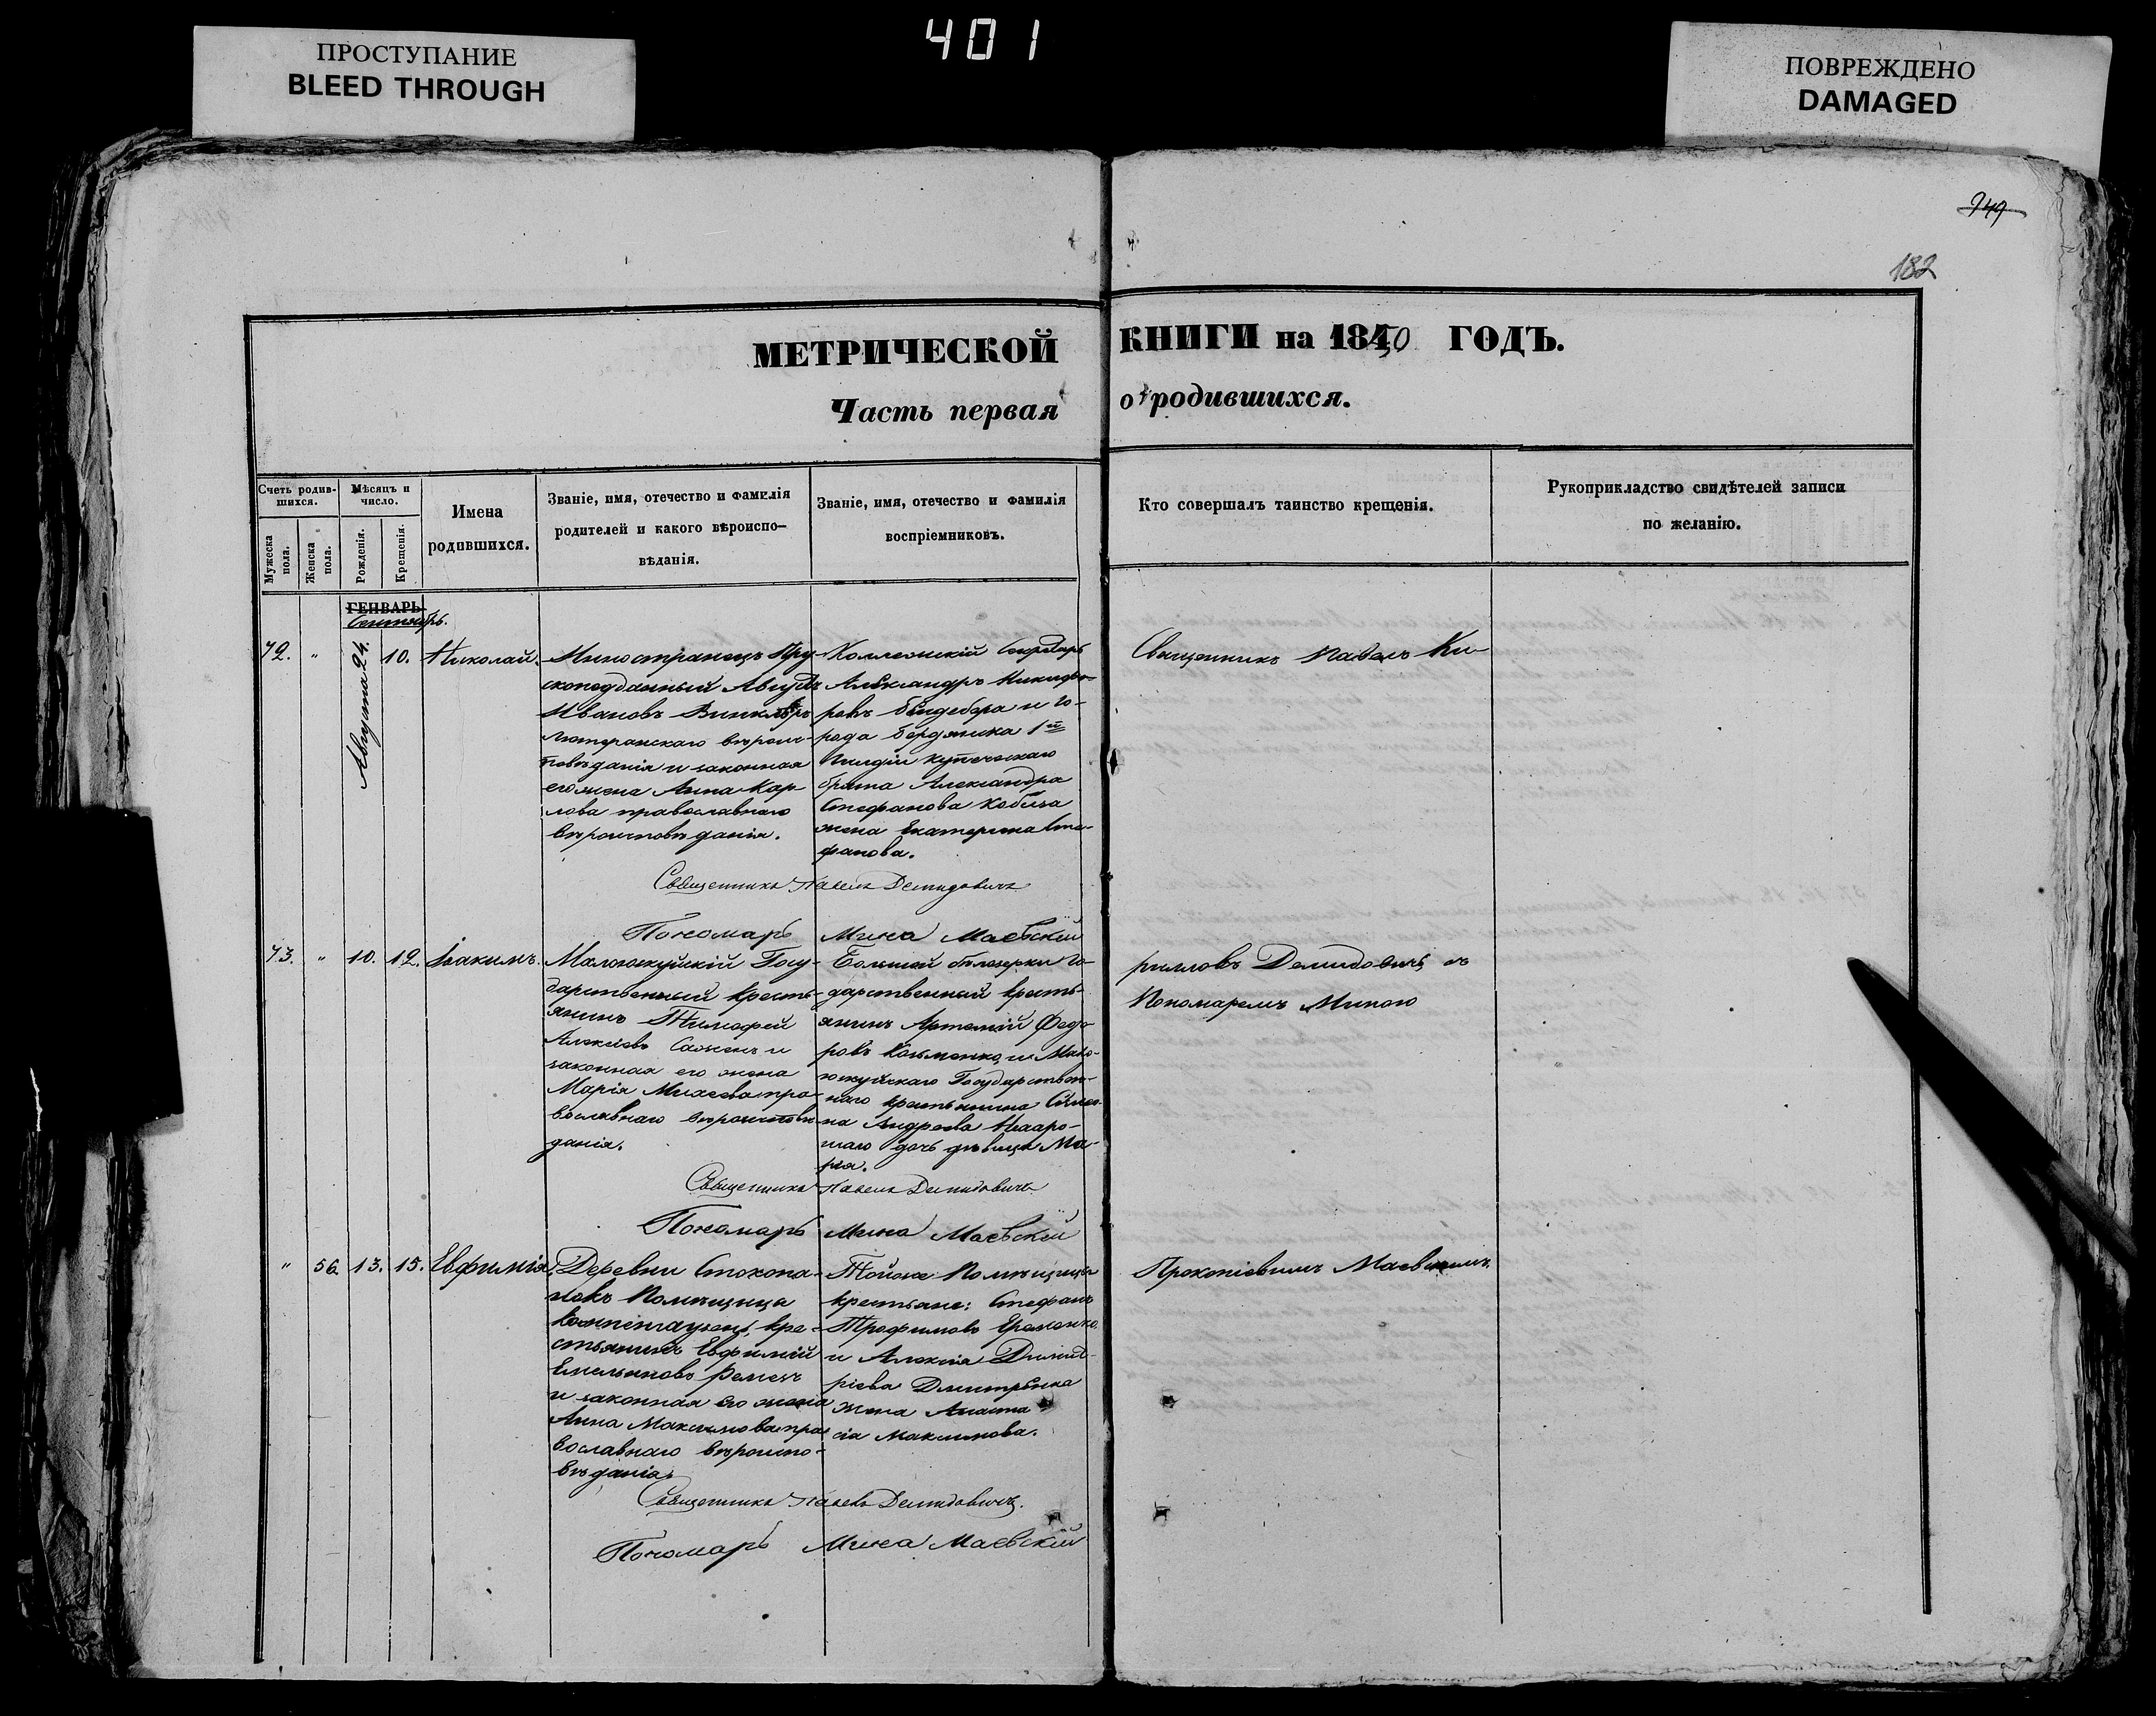 ПРОСТУПАНИЕ
BLEED THROUGH
401
ПОВРЕЖДЕНО
DAMAGED
949
182
МЕТРИЧЕСКОЙ КНИГИ на 1850 ГОДЪ.
Часть первая о родившихся.
Счетъ родив-
шихся.
Мужеска пола.
Женска пола.
Мѣсяцъ и
число.
Рожденія.
Крещенія.
Имена
родившихся.
Званіе, имя, отечество и фамилія
родителей и какого вѣроиспо-
вѣданія.
Званіе, имя, отечество и фамилія
воспріемниковъ.
Кто совершалъ таинство крещенія.
Рукоприкладство свидѣтелей записи
по желанію.
ГЕНВАРЬ
Сентябрь.
72.
"
Августа 24.
10.
Николай.
Иностранецъ Пру-
скоподданный Августъ
Ивановъ Винклеръ
лютеранскаго вѣроис-
повѣданія и законная
его жена Анна Кар-
лова православнаго
вѣроисповѣданія.
Коллежскій Секретарь
Александръ Никифо-
ровъ и го-
рода Бердянска 1й
Гильдіи купеческаго
брата Александра
Стефанова Кобы
жена Екатерина Сте-
фанова.
Священникъ Павелъ Ки-
Священникъ Павелъ Демидовичъ
Пономарь Мина Маевскій
73.
"
10.
12.
Іоакимъ.
Малоюкуйскій Госу-
дарственный кресть-
янинъ Тимофей
Алексіевъ и
законная его жена
Марія Михеева пра-
вославнаго вѣроисповѣ-
данія.
Большой Бѣлозерки Го-
дарственный кресть-
янинъ Артемій Федо-
ровъ Козьменко, и Мало-
юкуйскаго Государствен-
наго крестьянина
на Андреева
наго дочь дѣвица Ма-
рія.
рилловъ Демидовичъ съ
Пономаремъ Миною
Священникъ Павелъ Демидовичъ
Пономарь Мина Маевскій
"
56.
13.
15.
Евфимія.
Деревни
Помѣщица
кре-
стьянинъ Евфимій
Емельяновъ Ремезъ
и законная его жена
Анна Максимова пра-
вославнаго вѣроиспо-
вѣданія.
Тойже Помѣщицы
крестьяне: Стефанъ
Трофимовъ Ероменко,
и Алексія Димит-
ріева Дмитренка
жена Анаста-
сія Максимова.
Прокопіевимъ Маевскимъ.
Священникъ Павелъ Демидовичъ.
Пономарь Мина Маевскій